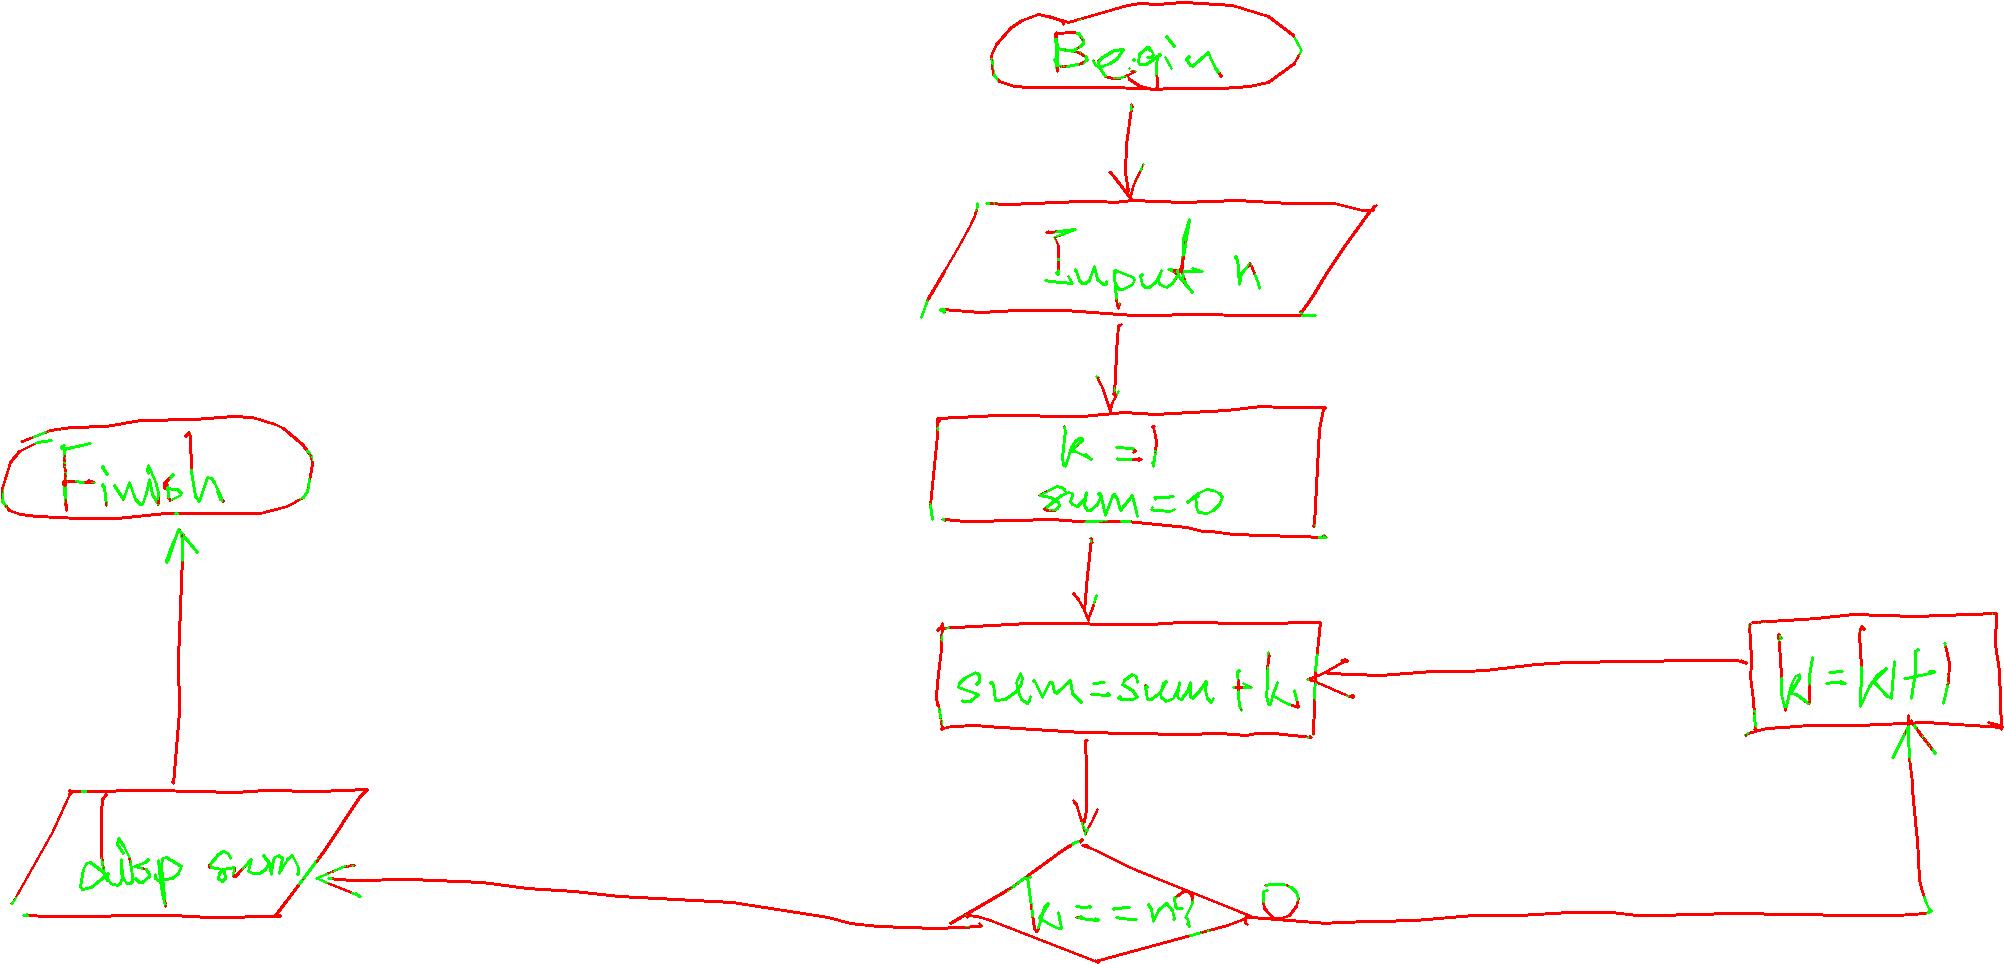 Begin
Input n
k = 1
sum = 0
sum = sum + k
k = k + 1
k = = n?
0
disp sum
Finish